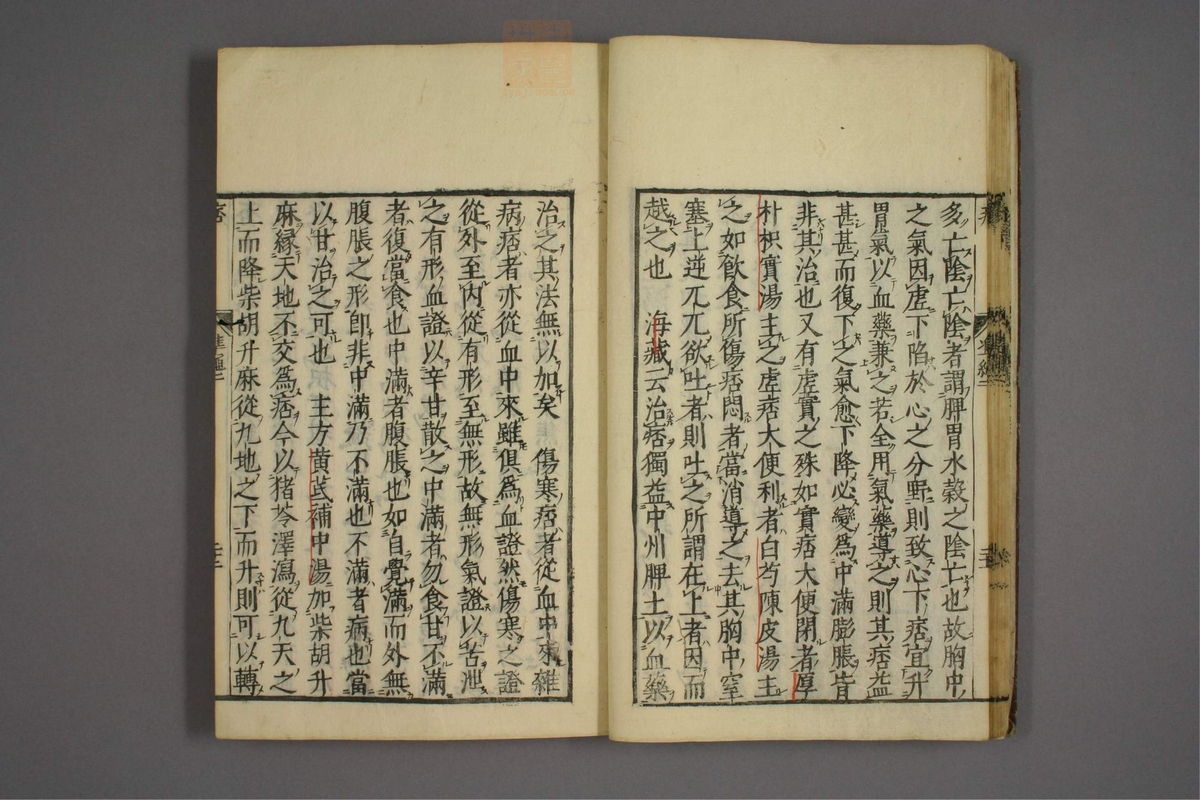 多亡陰亡陰者謂脾胃水穀之陰亡也故胸中
之氣因虛下陷於心之分野則致心下痞宜升
胃氣以血藥兼之若全用氣藥導之則其痞益
甚甚而復下之氣愈下降必變爲中滿膨脹皆
非其治也又有虛實之殊如實痞大便閉者厚
朴枳實湯主之虛痞大便利者白芍陳皮湯主
之如飲食所傷痞悶者當消導之去其胸中窒
塞上逆兀兀欲吐者則吐之所謂在上者因而
越之也　海藏云治痞獨益中州脾土以血藥
治之其法無以加矣　傷寒痞者從血中來雜
病痞者亦從血中來雖俱爲血證然傷寒之證
從外至内從有形至無形故無形氣證以苦泄
之有形血證以辛甘散之中滿者勿食甘不滿
者復當食也中滿者腹脹也如自覺滿而外無
腹脹之形即非中滿乃不滿也不滿者病也當
以甘治之可也　主方黄芪補中湯加柴胡升
麻縁天地不交爲痞今以猪苓澤瀉從九天之
上而降柴胡升麻從九地之下而升則可以轉